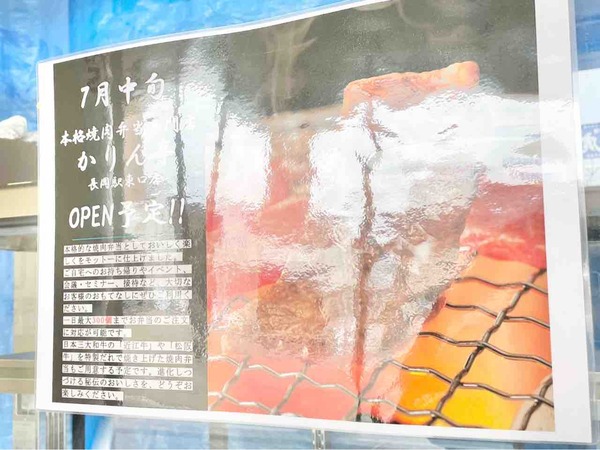 7月中旬
本格焼肉弁当
かりん
長岡駅東口店
OPEN予定!!
本格的な焼肉弁当としておいしく楽
しくをモットーに仕上げました。
ご自宅へのお持ち帰りやイベント、
会議・セミナー、接待など、大切な
お客様のおもてなしにぜひご利用く
ださい。
一日最大300個までお弁当のご注文
に対応が可能です。
日本三大和牛の「近江牛」や「松阪
牛」を特製だれで焼き上げた焼肉弁
当もご用意する予定です。進化しつ
づける秘伝のおいしさを、どうぞお
楽しみください。